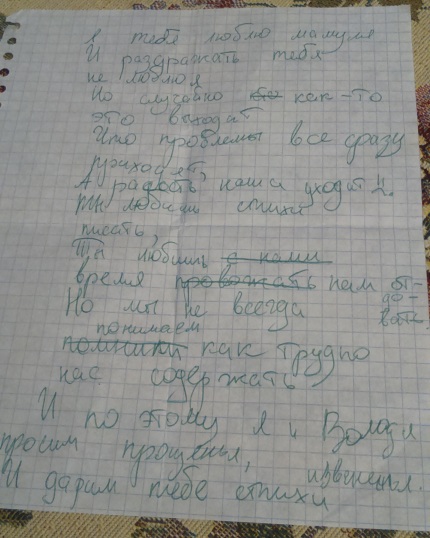 я тебя люблю мамуля
И раздражать тебя
не люблюя
Но случайно как-то
это выходит
Что проблемы все сразу
приходят,
А радость наша уходит
Ты любишь стихи
писать,
Ты любишь с нами
время провожать нам от-
да-
вать
Но мы не всегда
понимаем
как трудно
нас содержать
И по этому я и Володя
просим прощенья, извененья.
И дарим тебе стихи